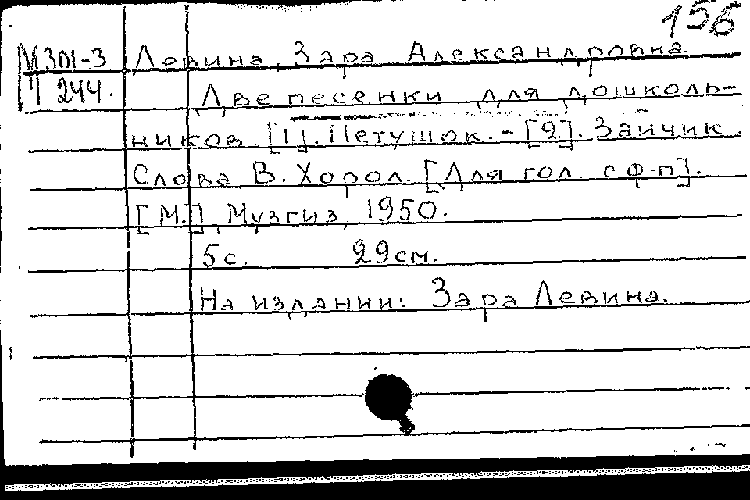 156
М 301-3 Левина, Зара Александровна
244. Две песенки для дошколь-
ников. [1]. Петушок. - [2]. Зайчик.
Слова В. Хорол. [Для гол. с ф-п].
[М.], Музгиз, 1950.
5с. 29см.
На издании: Зара Левина.